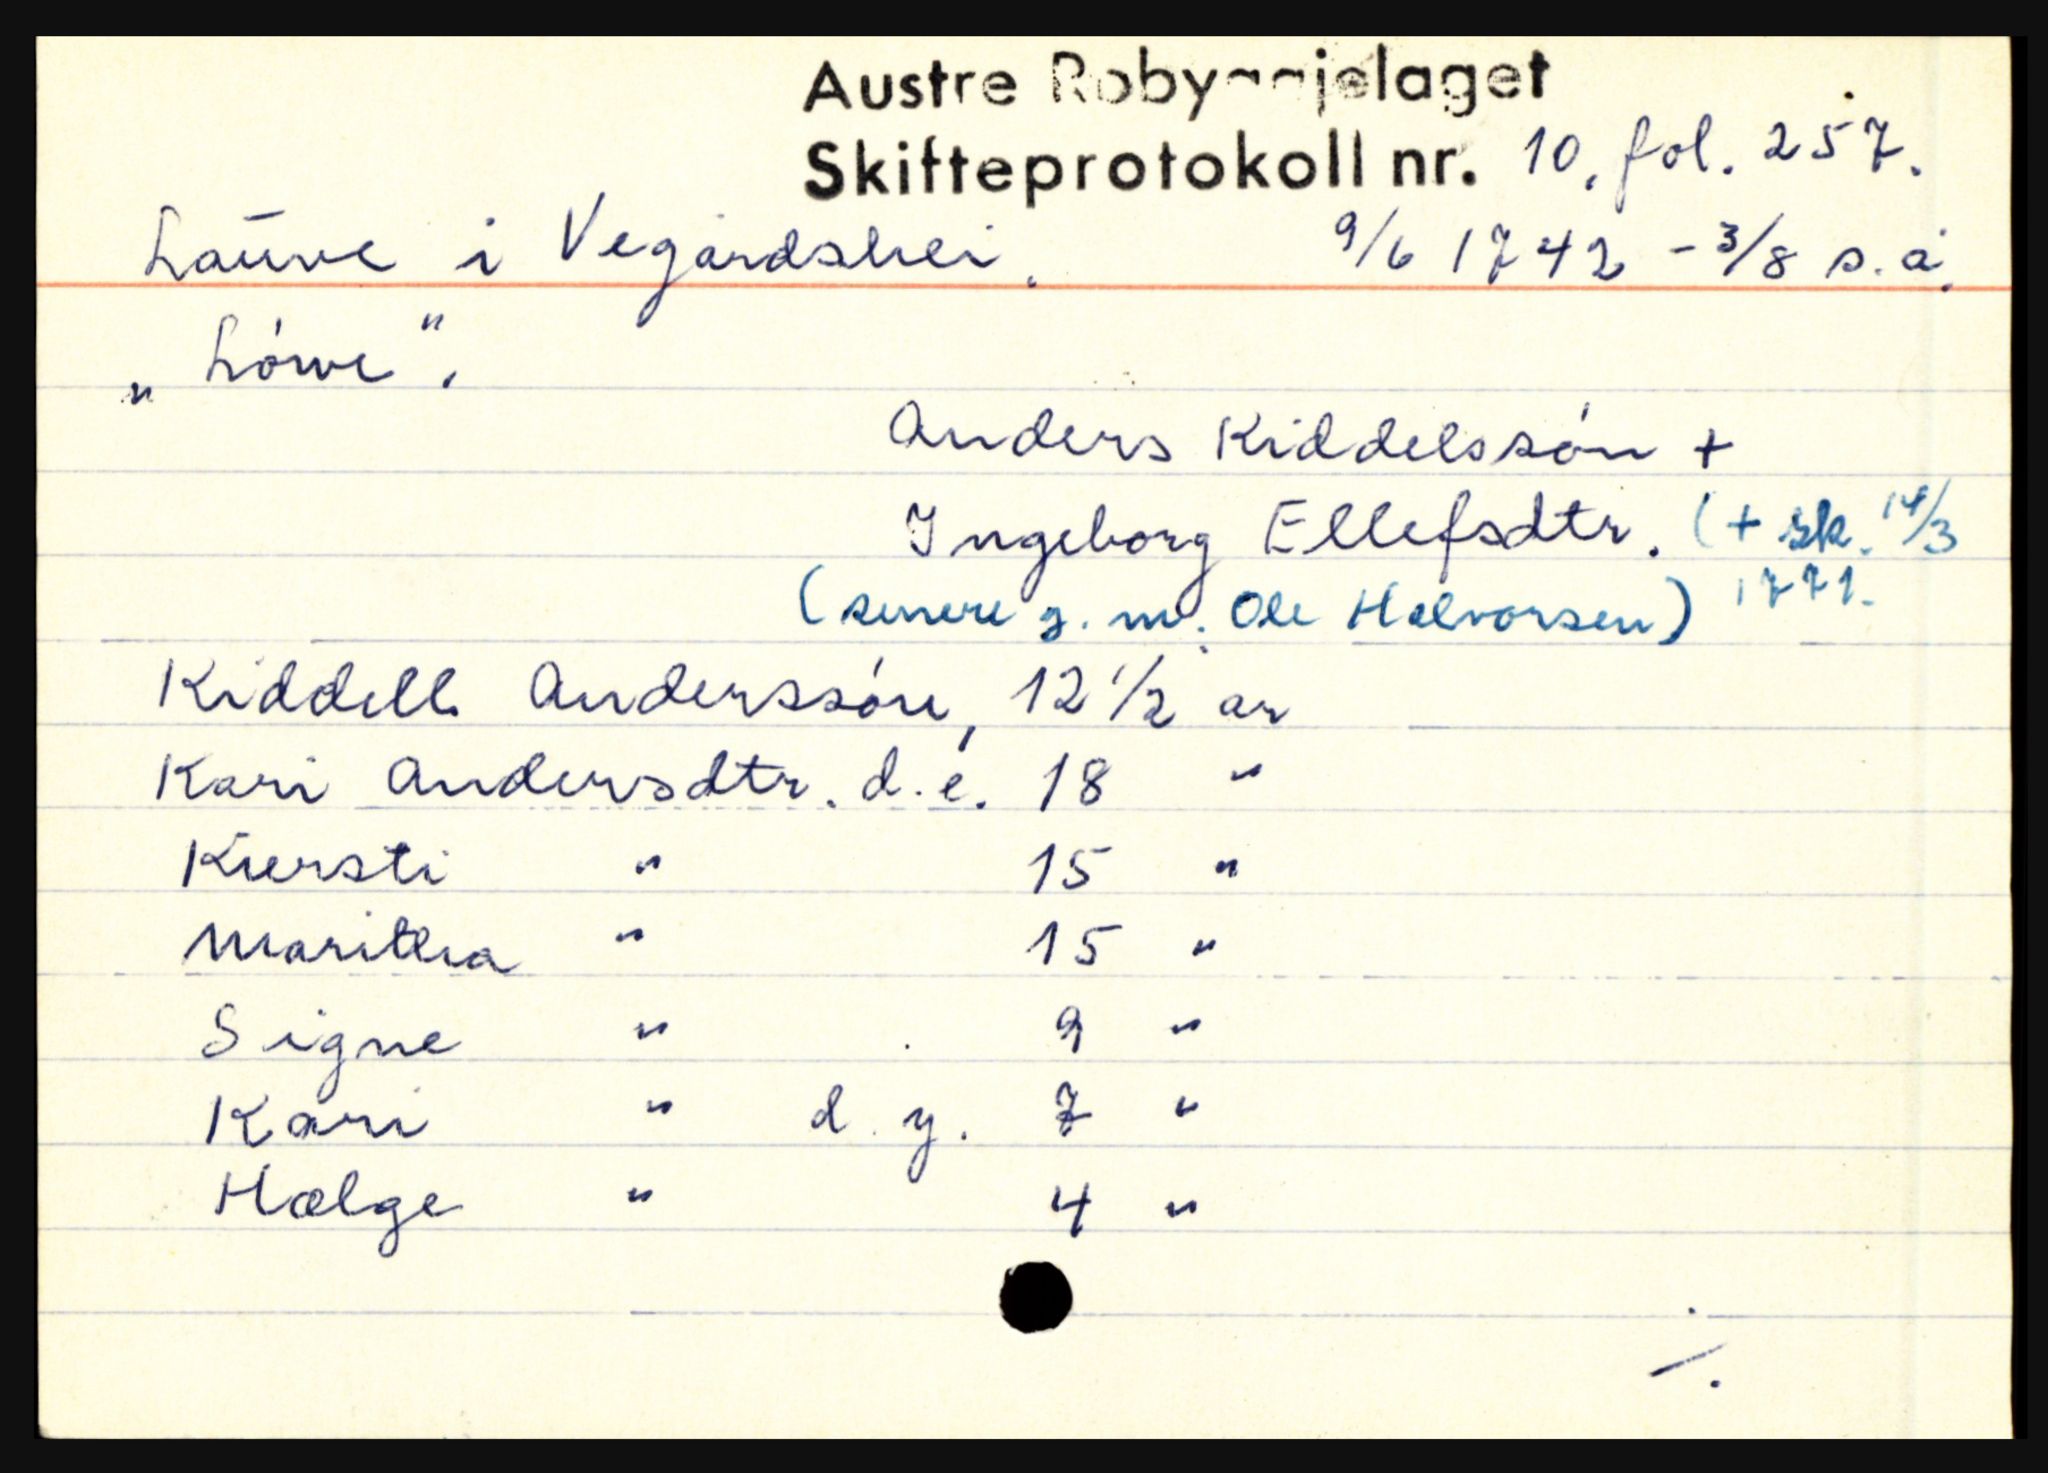 Austre Robyggjelaget
Skifteprotokoll nr. 10, fol. 257.
Lauve i Vegårdshei. 9/6 1742 - 3/8 s.å.
„Lówe".
Anders Kiddelssón +
Ingeborg Ellefsdtr. (+ sk. 14/3 1771.
(senere g. m. Ole Halvorsen)
Kiddell Anderssón, 12 1/2 år
Kari Andersdtr. d.e. 18 "
Kiersti " 15 "
Maritha " 15 "
Signe " 9 "
Kari " d.y. 7 "
Hælge " 4 "
./.